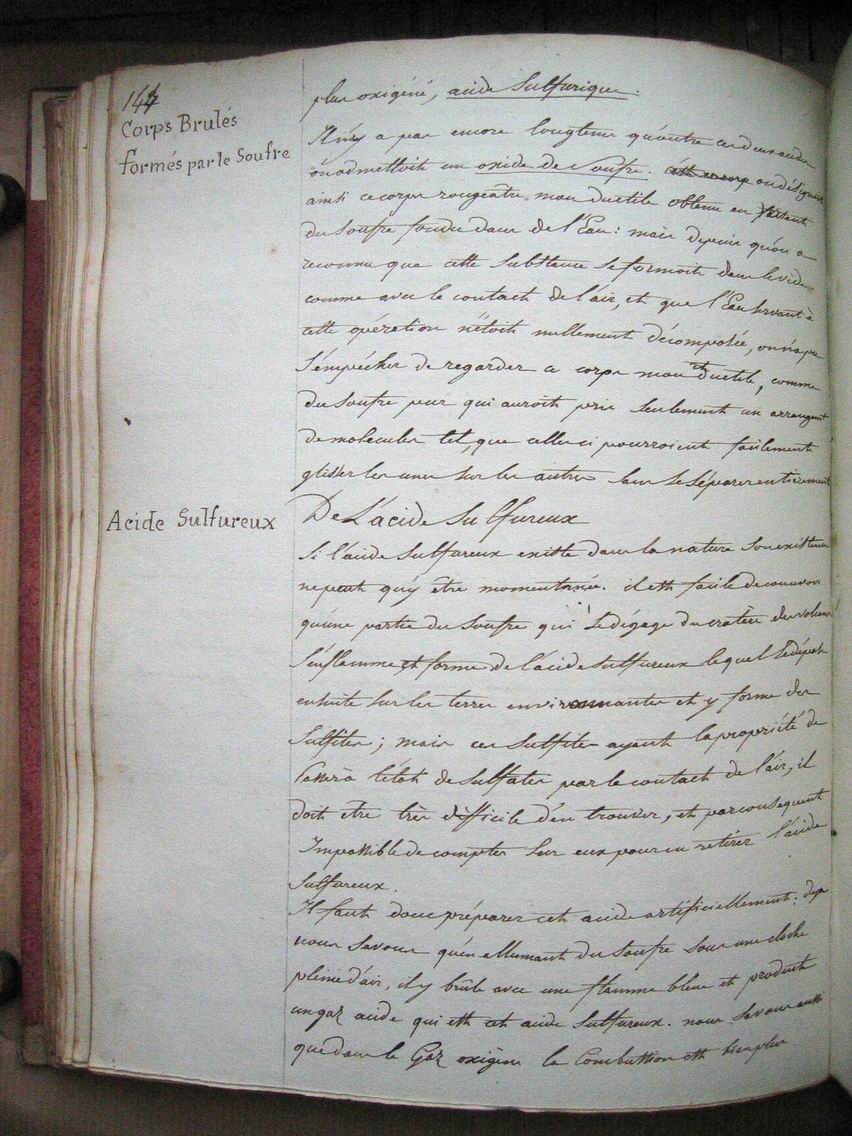 144
Corps Brulés
formés par le Soufre
plus oxigéné, acide Sulfurique.
Il n'y a pas encore longtems qu'outre ces deux acides
on admettoit un oxide de Soufre. on désignoit
ainsi ce corps rougeatre mou ductile obtenu en jettant
du Soufre fondu dans de l'Eau : mais depuis qu'on a
reconnu que cette Substance se formoit dans le vide
comme avec le contact de l'air, et que l'Eau servant à
cette opération n'étoit nullement décomposée, on n'a pu
S'empécher de regarder ce corps mou et ductile, comme
du Soufre pur qui auroit pris Seulement un arrangement
de molecules tel, que celles ci pourroient facilement
glisser les unes Sur les autres Sans Se Séparer entièrement
Acide Sulfureux
De L'acide Sulfureux
Si l'acide Sulfureux existe dans la nature Son existence
ne peut qu'y être momentanée. il est facile de concevoir
qu'une partie du Soufre qui Se dégage du cratère des volcans
S'enflamme et forme de l'acide Sulfureux lequel Se dépose
ensuite Sur les terres environnantes et y forme des
Sulfites ; mais ces Sulfites ayant la propriété de
passer à l'état de Sulfates par le contact de l'air, il
doit etre très difficile d'en trouver, et par consequent
Impossible de compter Sur eux pour en retirer l'acide
Sulfureux.
Il faut donc préparer cet acide artificiellement :
nous Savons qu'en allumant du Soufre Sous une cloche
pleine d'air, il y brûle avec une flamme bleue et produit
un gaz acide qui est cet acide Sulfureux. nous Savons aussi
que dans le Gaz oxigène la Combustion est bien plus